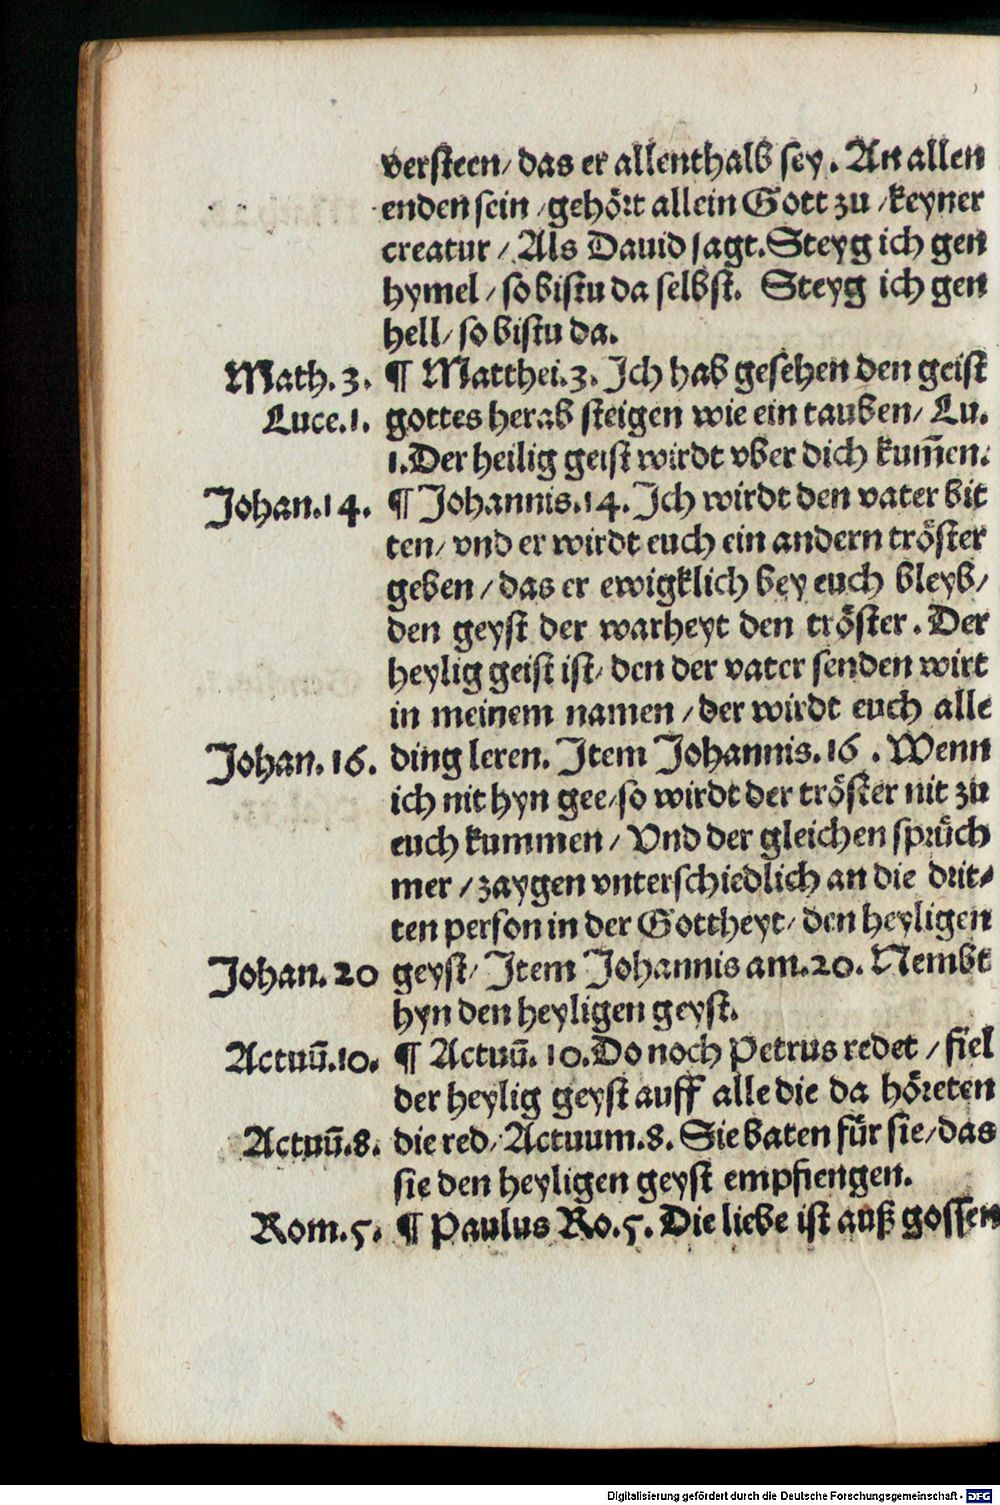 versteen/ das er allenthalb sey. An allen
enden sein/ gehört allein Gott zu/ keyner
creatur/ Als Dauid sagt. Steyg ich gen
hymel/ so bistu da selbst. Steyg ich gen
hell/ so bistu da.
Math. 3. ¶ Matthei. 3. Ich hab gesehen den geist
Luce. 1. gottes herab steigen wie ein tauben/ Lu.
1. Der heilig geist wirdt vber dich kum̄en.
Johan. 14. ¶ Johannis. 14. Ich wirdt den vater bit
ten/ vnd er wirdt euch ein andern tröster
geben/ das er ewigklich bey euch bleyb/
den geyst der warheyt den tröster. Der
heylig geist ist/ den der vater senden wirt
in meinem namen/ der wirdt euch alle
Johan. 16. ding leren. Item Johannis. 16. Wenn
ich nit hyn gee/ so wirdt der tröster nit zu
euch kummen/ Vnd der gleichen sprüch
mer/ zaygen vnterschiedlich an die drit-
ten person in der Gottheyt/ den heyligen
Johan. 20 geyst/ Item Johannis am. 20. Nembt
hyn den heyligen geyst.
Actuū. 10. ¶ Actuū. 10. Do noch Petrus redet/ fiel
der heylig geyst auff alle die da höreten
Actuū. 8. die red/ Actuum. 8. Sie baten für sie/ das
sie den heyligen geyst empfiengen.
Rom. 5. ¶ Paulus Ro. 5. Die liebe ist auß gossen
Digitalisierung gefördert durch die Deutsche Forschungsgemeinschaft - DFG